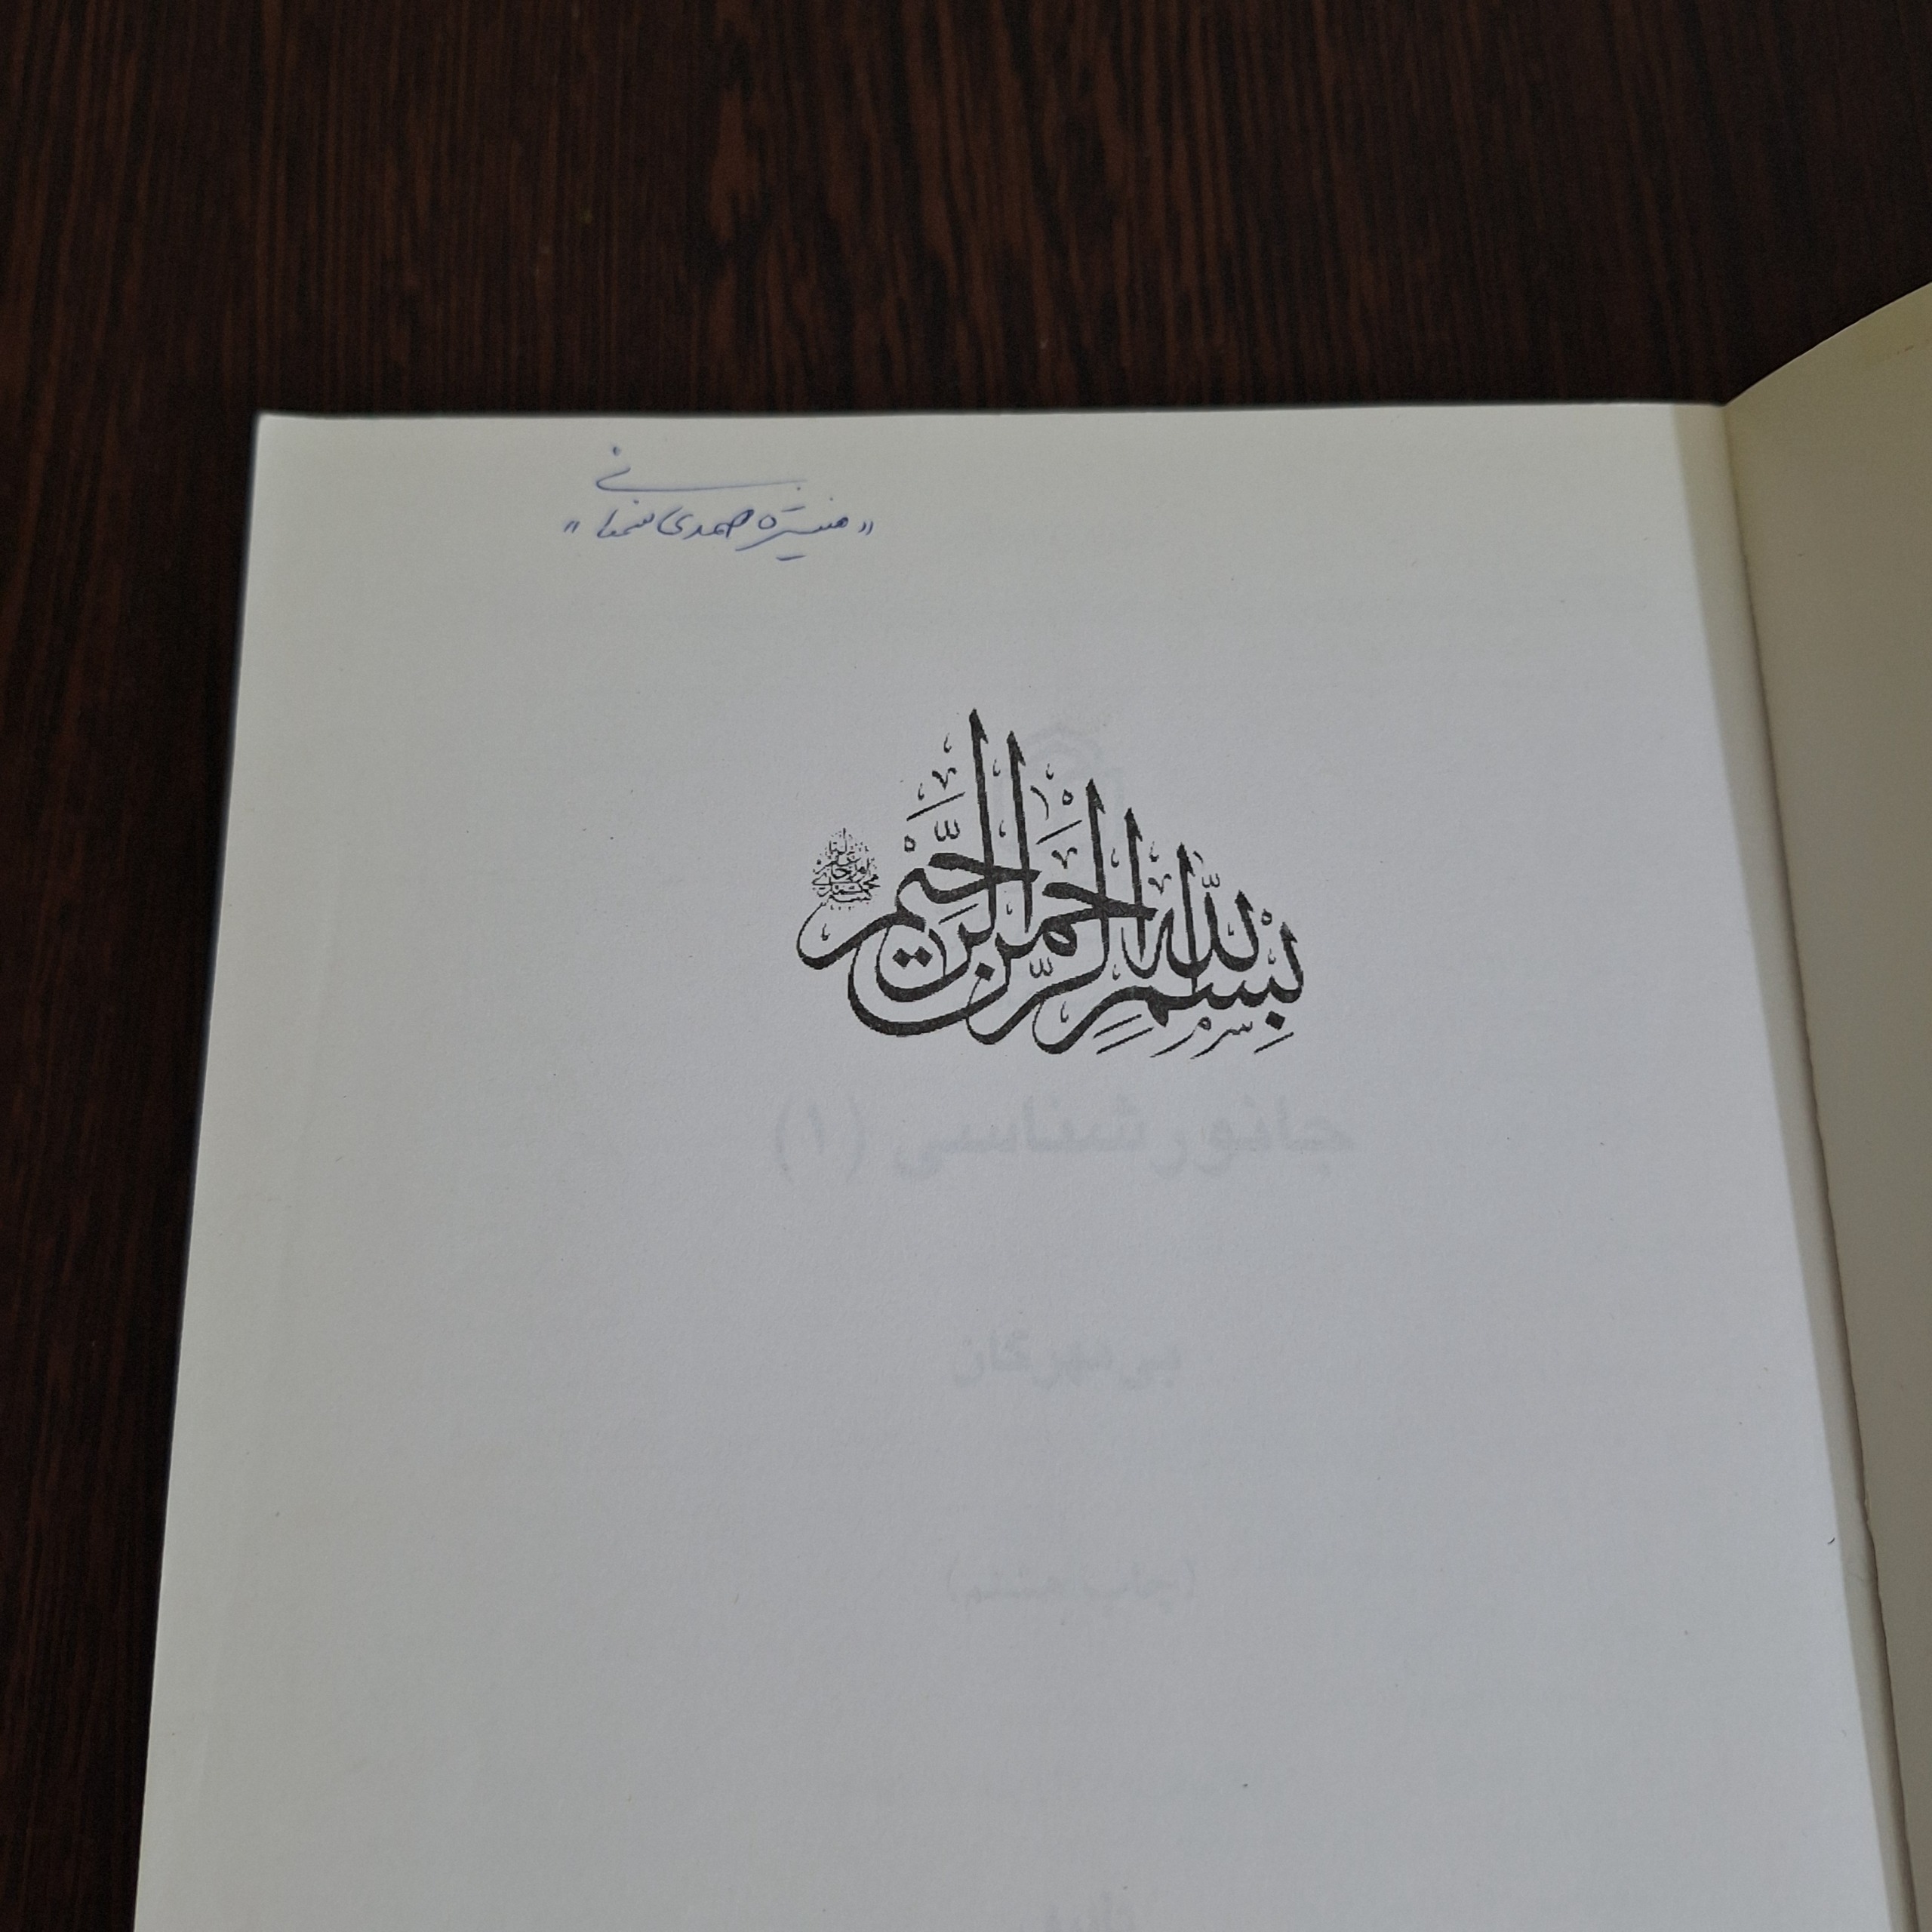 «منیژه صمدی شمعسانی»
بِسْمِ اللَّهِ الرَّحْمَنِ الرَّحِيمِ
جانورشناسی (۱)
بی‌مهرگان
(چاپ هشتم)